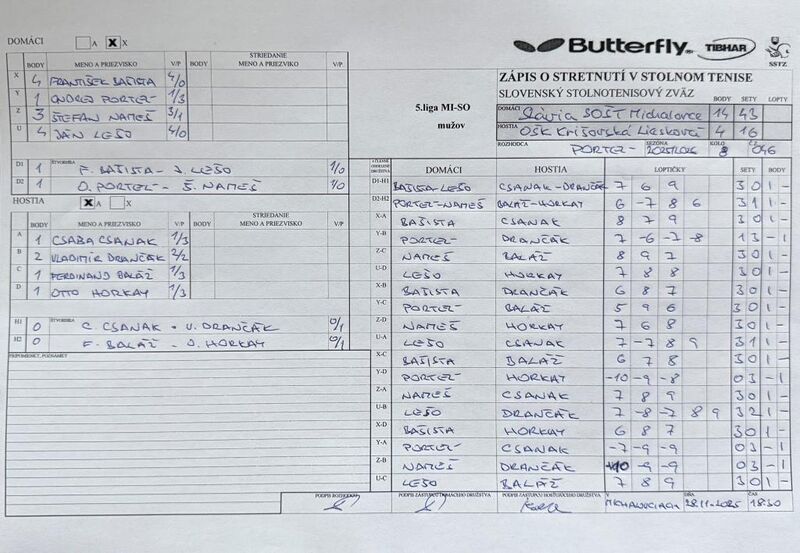 DOMÁCI A X X
Butterfly TIBHAR SSTZ
BODY MENO A PRIEZVISKO V/P BODY STRIEDANIE MENO A PRIEZVISKO V/P
X 4 FRANTIŠEK BAŠISTA 4/0
Y 1 ONDREJ PORTEL 1/3
Z 3 ŠTEFAN NAMEŠ 3/1
U 4 JÁN LEŠO 4/0
5.liga MI-SO
mužov
ZÁPIS O STRETNUTÍ V STOLNOM TENISE
SLOVENSKÝ STOLNOTENISOVÝ ZVÄZ BODY SETY LOPTY
DOMÁCI Slávia SOŠT Michalovce 14 43
HOSTIA OŠK Krišovská Liesková 4 16
ROZHODCA PORTEL SEZÓNA 2025/2026 KOLO 8 Č. 046
D1 1 ŠTVORHRA F. BAŠISTA - J. LEŠO 1/0
D2 1 O. PORTEL - Š. NAMEŠ 1/0
HOSTIA X A X
BODY MENO A PRIEZVISKO V/P BODY STRIEDANIE MENO A PRIEZVISKO V/P
A 1 CSABA CSANAK 1/3
B 2 VLADIMÍR DRANČÁK 2/2
C 1 FERDINAND BALÁŽ 1/3
D 1 OTTO HORKAY 1/3
H1 0 ŠTVORHRA C. CSANAK - V. DRANČÁK 0/1
H2 0 F. BALÁŽ - O. HORKAY 0/1
PRIPOMIENKY, POZNÁMKY
DOMÁCI HOSTIA LOPTIČKY SETY BODY
D1-H1 BAŠISTA-LEŠO CSANAK-DRANČÁK 7 6 9 3 0 1 -
D2-H2 PORTEL-NAMEŠ BALÁŽ-HORKAY 6 -7 8 6 3 1 1 -
X-A BAŠISTA CSANAK 8 7 9 3 0 1 -
Y-B PORTEL DRANČÁK 7 -6 -7 -8 1 3 - 1
Z-C NAMEŠ BALÁŽ 8 9 7 3 0 1 -
U-D LEŠO HORKAY 7 8 8 3 0 1 -
X-B BAŠISTA DRANČÁK 6 8 7 3 0 1 -
Y-C PORTEL BALÁŽ 5 9 6 3 0 1 -
Z-D NAMEŠ HORKAY 7 6 8 3 0 1 -
U-A LEŠO CSANAK 7 -7 8 9 3 1 1 -
X-C BAŠISTA BALÁŽ 6 7 8 3 0 1 -
Y-D PORTEL HORKAY -10 -9 -8 0 3 - 1
Z-A NAMEŠ CSANAK 7 8 9 3 0 1 -
U-B LEŠO DRANČÁK 7 -8 -7 8 9 3 2 1 -
X-D BAŠISTA HORKAY 6 8 7 3 0 1 -
Y-A PORTEL CSANAK -7 -9 -9 0 3 - 1
Z-B NAMEŠ DRANČÁK -10 -9 -9 0 3 - 1
U-C LEŠO BALÁŽ 7 8 9 3 0 1 -
PODPIS ROZHODCU PODPIS ZÁSTUPCU DOMÁCEHO DRUŽSTVA PODPIS ZÁSTUPCU HOSŤUJÚCEHO DRUŽSTVA V MICHALOVCIACH DŇA 28.11.2025 ČAS 18:30